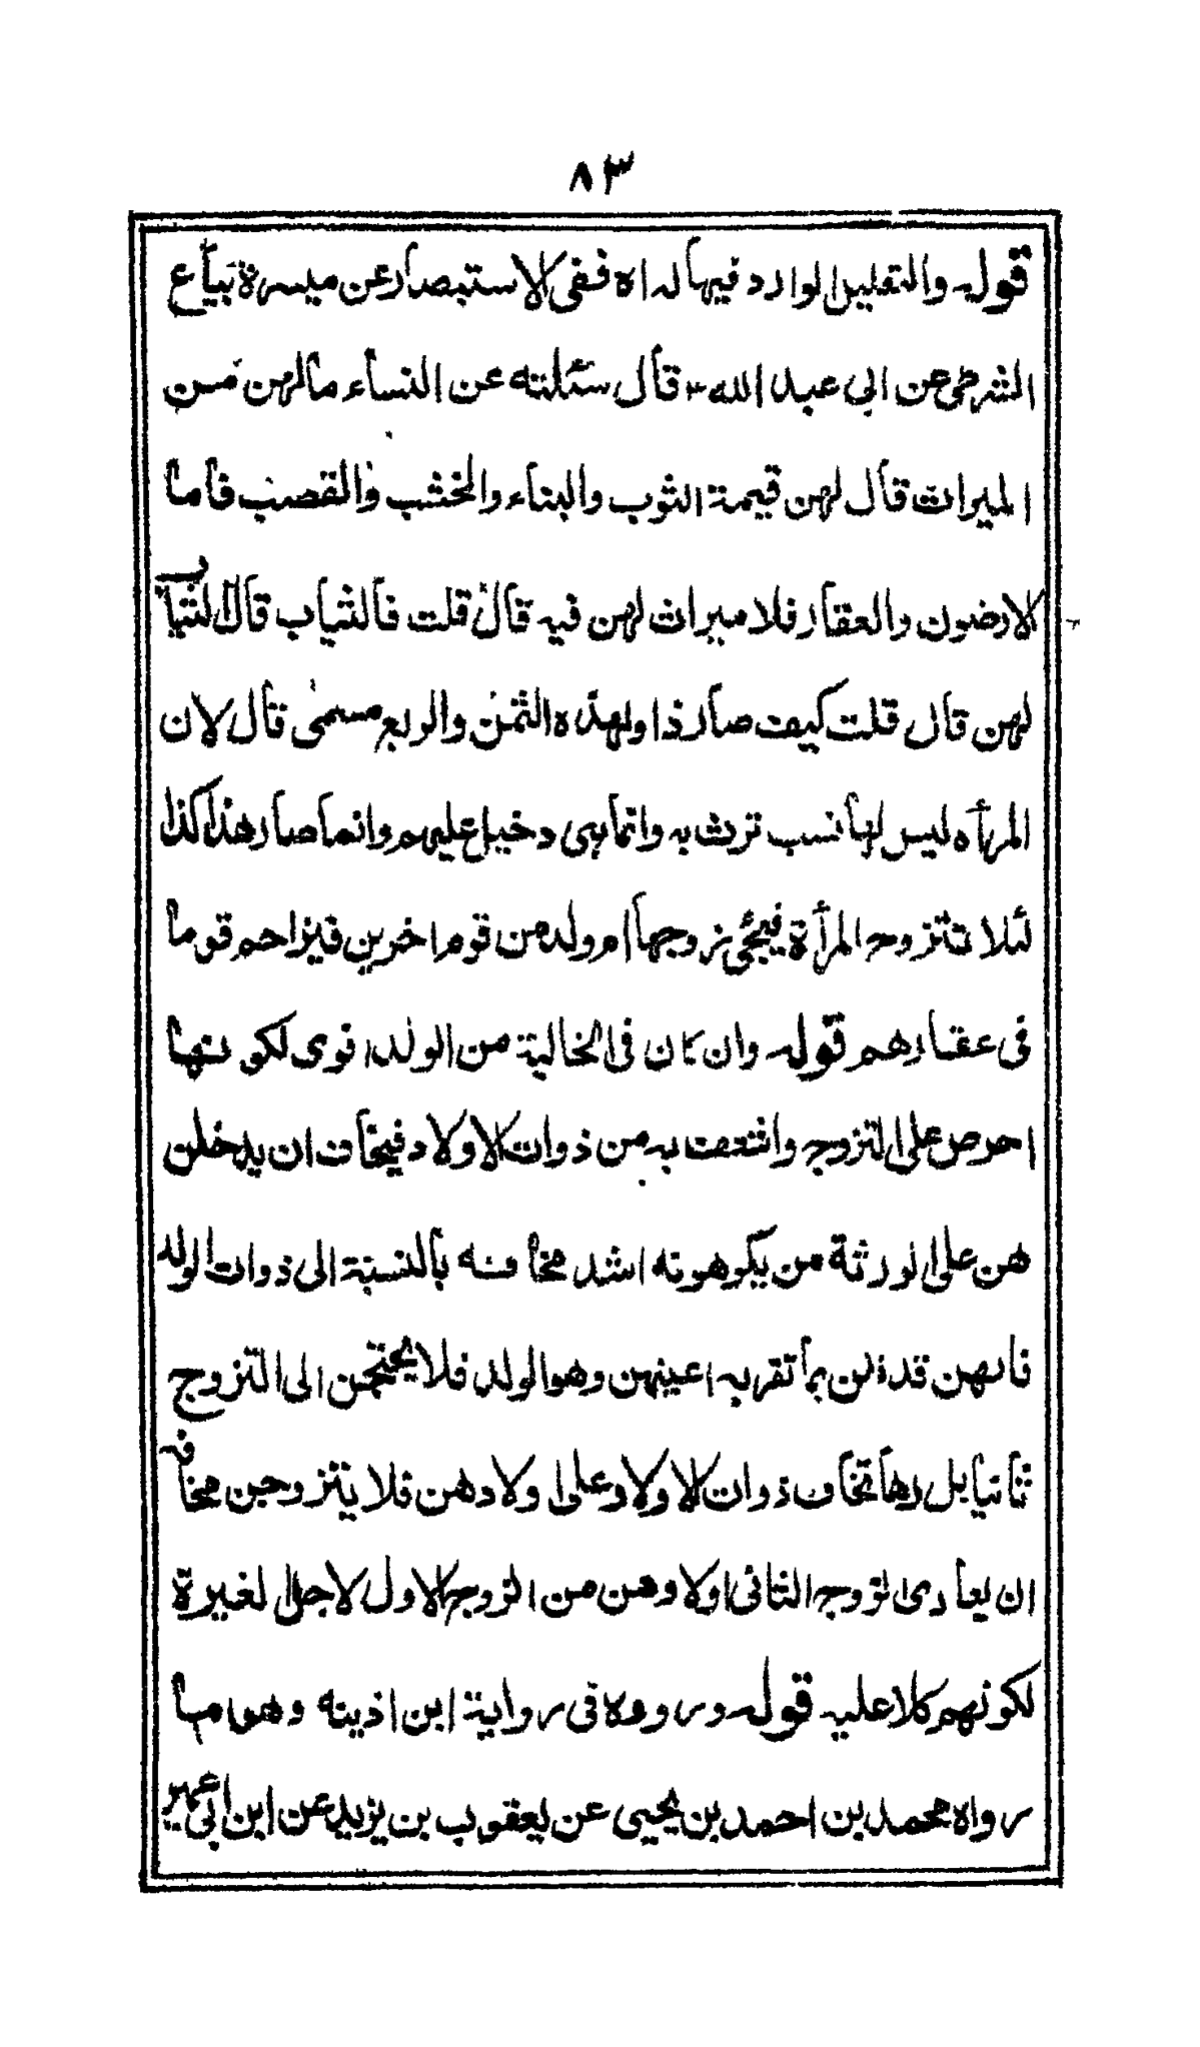 ٨٣
قوله والتعليل الوارد فيها له اه ففى الاستبصار عن ميسرة بياع
الشرطى عن ابى عبد الله ع قال سئلته عن النساء ما لهن من
الميراث قال لهن قيمة الثوب والبناء والخشب والقصب فاما
الارضون والعقار فلا ميراث لهن فيه قال قلت فالثياب قال الثياب
لهن قال قلت كيف صار ذا ولهذه الثمن والربع مسمى قال لان
المرأه ليس لها نسب ترث به وانما هى دخيل عليهم وانما صار هذا كذا
لئلا تتزوج المرأة فيجئ زوجها ام ولد من قوم اخرين فيزاحم قوما
فى عقارهم قوله وان كان فى الخالية من الولد اقوى لكونها
احرص على التزوج واشتغفت به من ذوات الاولاد فيخاف ان يدخلن
هن على الورثة من يكرهونه اشد مخافته بالنسبة الى ذوات الولد
فانهن قد ذن بما تقر به اعينهن وهو الولد فلا يحتجن الى التزوج
ثانيا بل ربما تخاف ذوات الاولاد على اولادهن فلا يتزوجن مخافة
ان يعادى الزوج الثانى اولادهن من الزوج الاول لاجل الغيرة
لكونهم كلا عليه قوله ورووه فى رواية ابن اذينه وهو ما
رواه محمد بن احمد بن يحيى عن يعقوب بن يزيد عن ابن ابى عمير